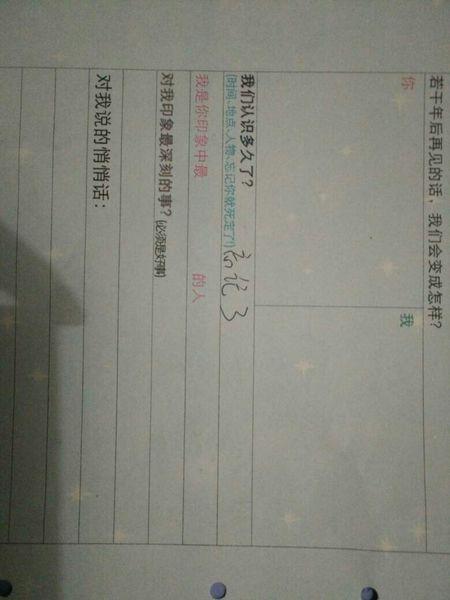 若干年后再见的话，我们会变成怎样？
你
我
我们认识多久了？
(时间、地点、人物、忘记你就死定了!)
忘记了
我是你印象中最 的人
对我印象最深刻的事？(必须是好事)
对我说的悄悄话：